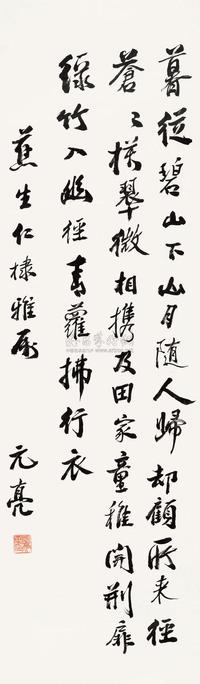 暮從碧山下山月隨人歸却顧所來徑
蒼〻橫翠微相携及田家童稚開荆扉
綠竹入幽徑青蘿拂行衣
蕉生仁棣雅属
元亮